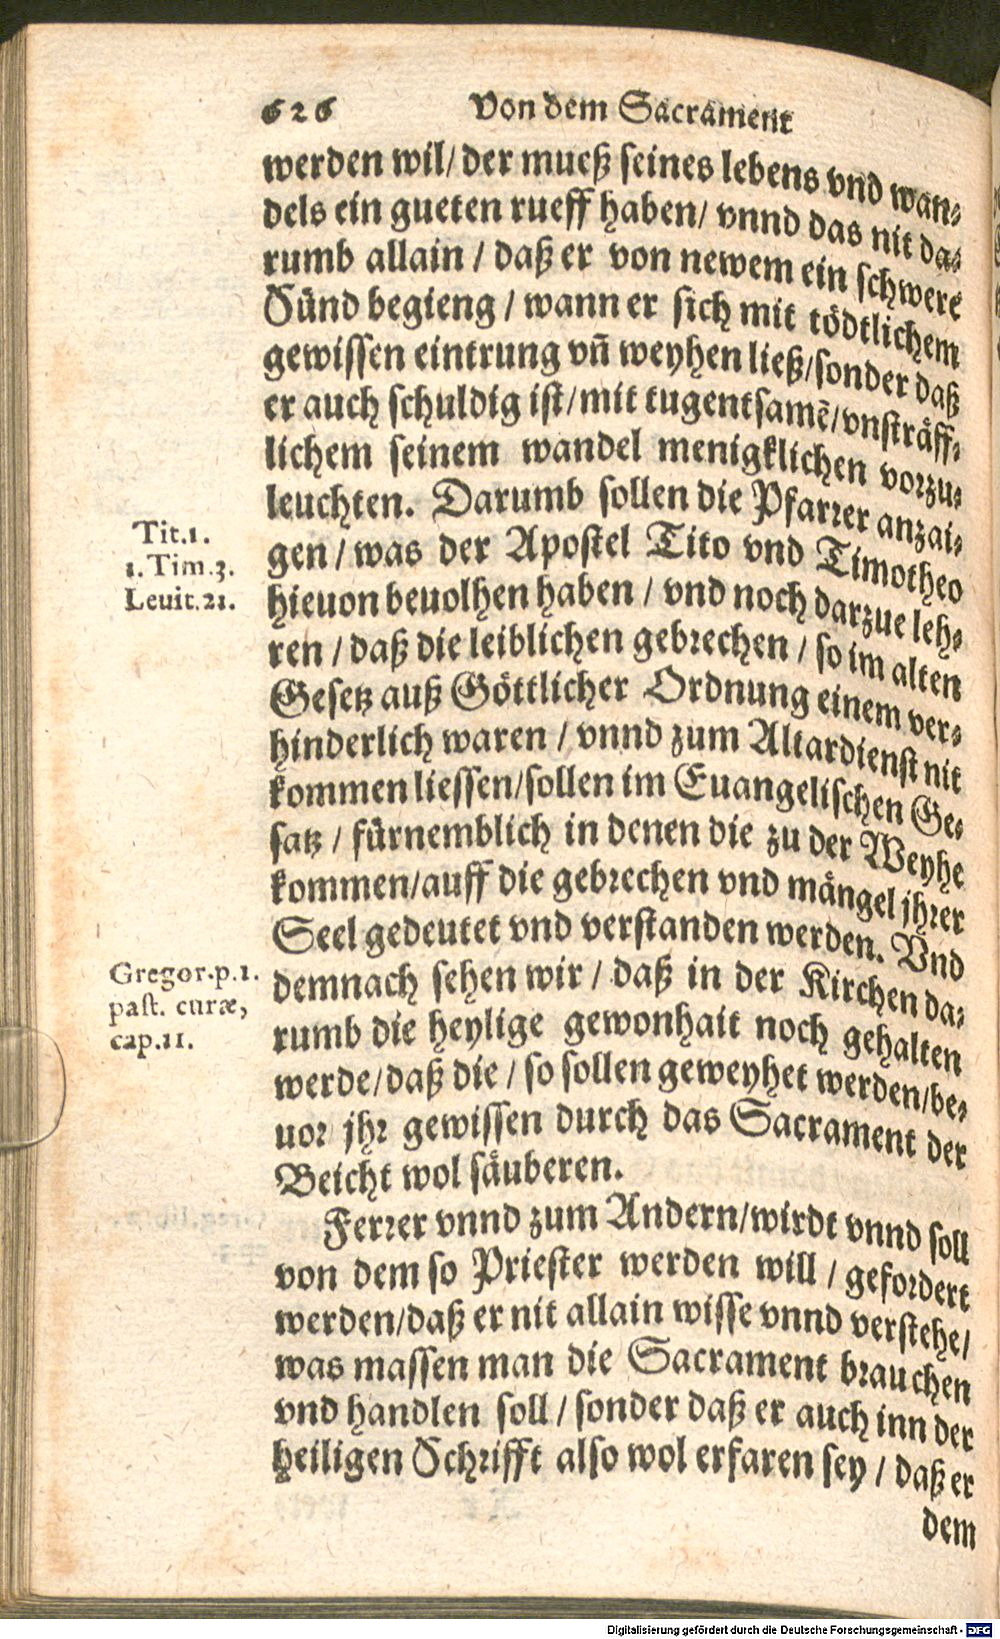 626 Von dem Sacrament
werden wil/ der mueß seines lebens vnd wan⸗
dels ein gueten rueff haben/ vnnd das nit da⸗
rumb allain / daß er von newem ein schwere
Sünd begieng / wann er sich mit tödtlichem
gewissen eintrung vñ weyhen ließ/sonder daß
er auch schuldig ist/mit tugentsamẽ/vnsträff⸗
lichem seinem wandel menigklichen vorzu⸗
leuchten. Darumb sollen die Pfarrer anzai⸗
Tit.1.
gen / was der Apostel Tito vnd Timotheo
1. Tim.3.
hieuon beuolhen haben / vnd noch darzue leh⸗
Leuit.21.
ren / daß die leiblichen gebrechen / so im alten
Gesetz auß Göttlicher Ordnung einem ver⸗
hinderlich waren / vnnd zum Altardienst nit
kommen liessen/sollen im Euangelischen Ge⸗
satz / fürnemblich in denen die zu der Weyhe
kommen/auff die gebrechen vnd mängel jhrer
Seel gedeutet vnd verstanden werden. Vnd
Gregor.p.1.
demnach sehen wir / daß in der Kirchen da⸗
past. curæ,
rumb die heylige gewonhait noch gehalten
cap.11.
werde/daß die / so sollen geweyhet werden/be⸗
uor jhr gewissen durch das Sacrament der
Beicht wol säuberen.
Ferrer vnnd zum Andern/wirdt vnnd soll
von dem so Priester werden will / gefordert
werden/daß er nit allain wisse vnnd verstehe/
was massen man die Sacrament brauchen
vnd handlen soll / sonder daß er auch inn der
heiligen Schrifft also wol erfaren sey / daß er
dem
Digitalisierung gefördert durch die Deutsche Forschungsgemeinschaft - DFG